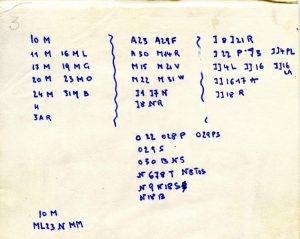 3
10 M
11 M 16 M L
13 M 19 M G
20 M 23 M O
24 M 31 M B
H
3 A R
A23 A29F
A30 M14R
M15 M21V
M22 M31W
J1 J7N
J8 N R
J8 J21R
J22
JJ4PL
JJ4L JJ16
JJ16 LA
JJ1617 A
JJ18 R
O22 O28P O29PS
O29S
O30 B N S
N678T
N9N18S
N18B
10 M
ML23 N MM